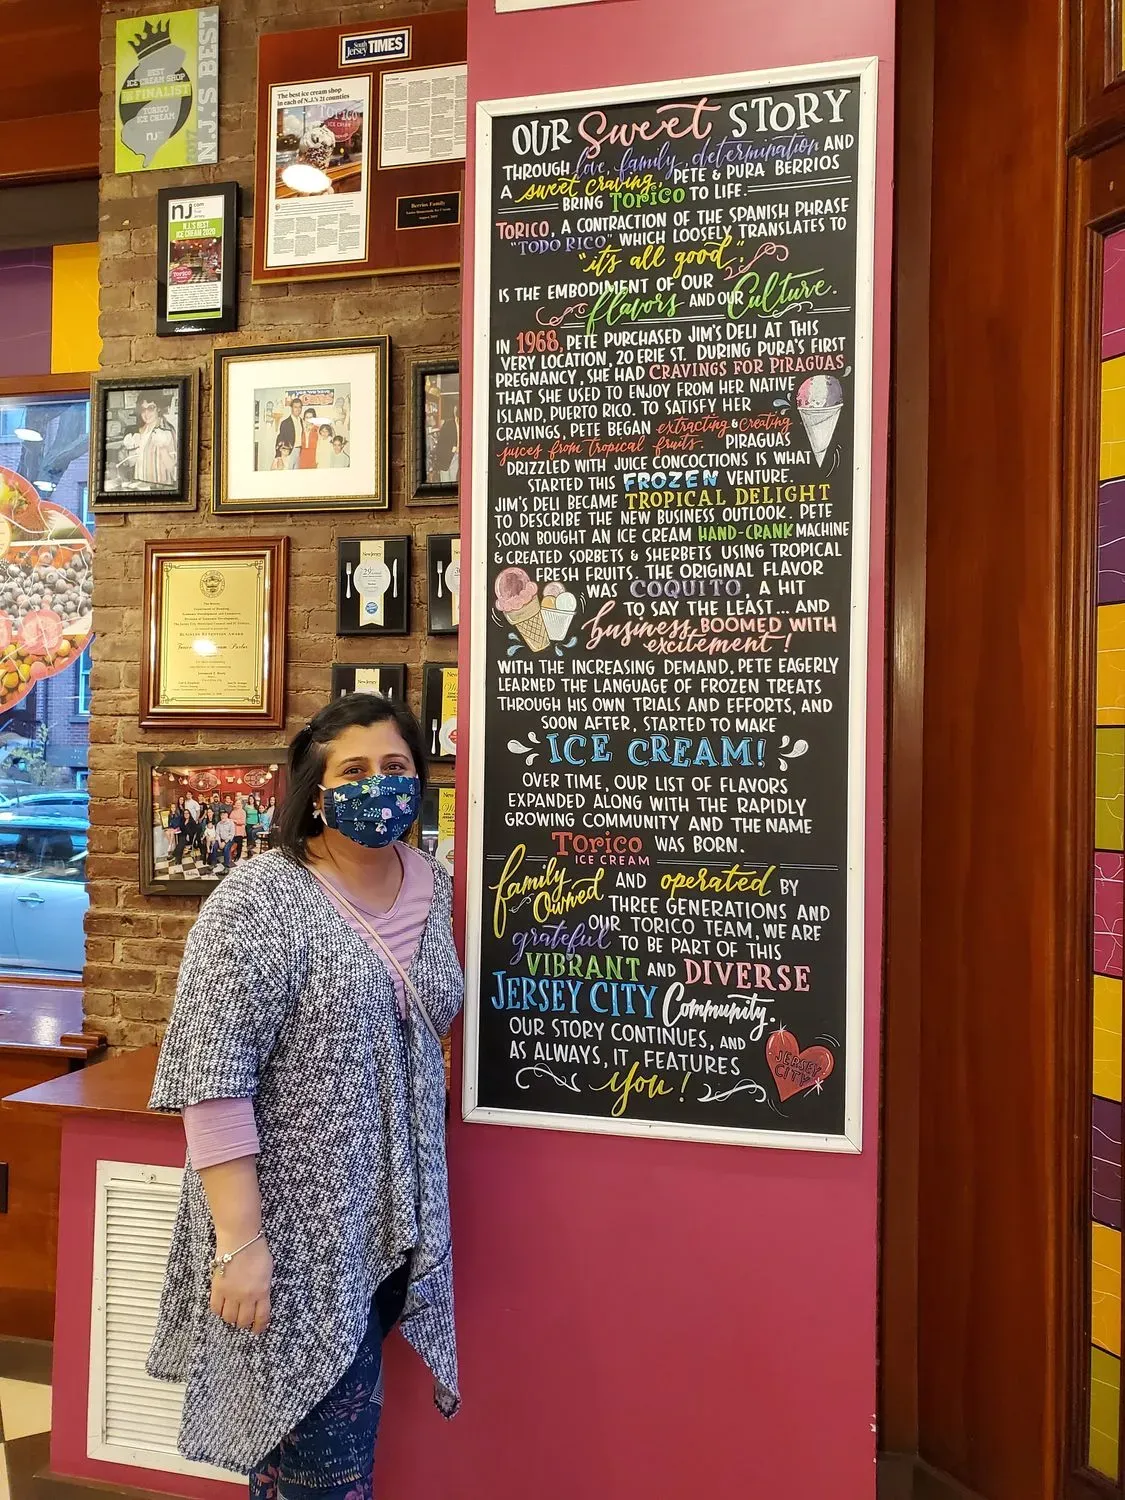 BEST
ICE CREAM SHOP
FINALIST
TORICO
ICE CREAM
nj
N.J.'S BEST
South Jersey TIMES
The best ice cream shop
in each of N.J.'s 21 counties
TORICO
ICE CREAM
Berrios Family
nj.com
N.J.'S BEST
ICE CREAM 2020
TORICO
BUSINESS RETENTION AWARD
New Jersey
New Jersey
OUR Sweet STORY
THROUGH love, family, determination AND
A sweet craving, PETE & PURA BERRIOS
BRING TORICO TO LIFE.
TORICO, A CONTRACTION OF THE SPANISH PHRASE
"TODO RICO," WHICH LOOSELY TRANSLATES TO
"it's all good",
IS THE EMBODIMENT OF OUR
flavors AND OUR Culture.
IN 1968, PETE PURCHASED JIM'S DELI AT THIS
VERY LOCATION, 20 ERIE ST. DURING PURA'S FIRST
PREGNANCY, SHE HAD CRAVINGS FOR PIRAGUAS
THAT SHE USED TO ENJOY FROM HER NATIVE
ISLAND, PUERTO RICO. TO SATISFY HER
CRAVINGS, PETE BEGAN extracting & creating
juices from tropical fruits. PIRAGUAS
DRIZZLED WITH JUICE CONCOCTIONS IS WHAT
STARTED THIS FROZEN VENTURE.
JIM'S DELI BECAME TROPICAL DELIGHT
TO DESCRIBE THE NEW BUSINESS OUTLOOK. PETE
SOON BOUGHT AN ICE CREAM HAND-CRANK MACHINE
& CREATED SORBETS & SHERBETS USING TROPICAL
FRESH FRUITS. THE ORIGINAL FLAVOR
WAS COQUITO, A HIT
TO SAY THE LEAST... AND
business BOOMED WITH
excitement!
WITH THE INCREASING DEMAND, PETE EAGERLY
LEARNED THE LANGUAGE OF FROZEN TREATS
THROUGH HIS OWN TRIALS AND EFFORTS, AND
SOON AFTER, STARTED TO MAKE
ICE CREAM!
OVER TIME, OUR LIST OF FLAVORS
EXPANDED ALONG WITH THE RAPIDLY
GROWING COMMUNITY AND THE NAME
TORICO WAS BORN.
ICE CREAM
family Owned AND operated BY
THREE GENERATIONS AND
OUR TORICO TEAM, WE ARE
grateful TO BE PART OF THIS
VIBRANT AND DIVERSE
JERSEY CITY Community.
OUR STORY CONTINUES, AND
AS ALWAYS, IT FEATURES
you!
JERSEY
CITY